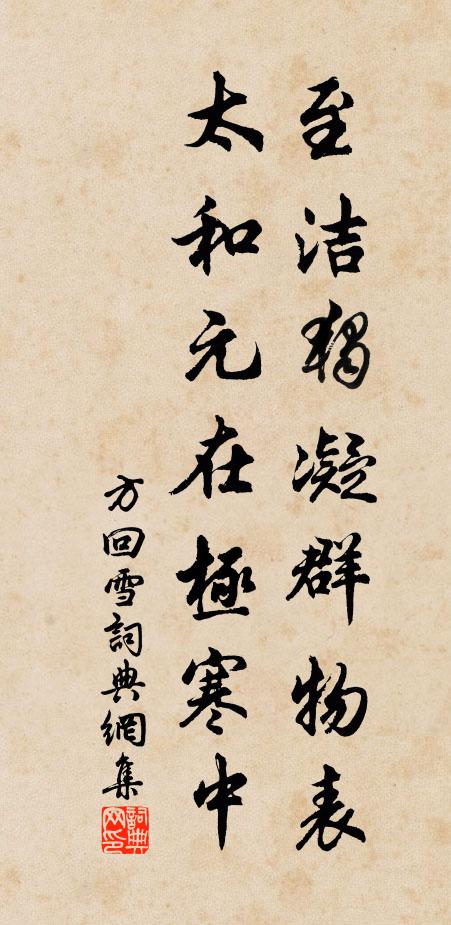 至洁獨凝群物表
太和元在極寒中
方回雪詞典網集
詞典网印